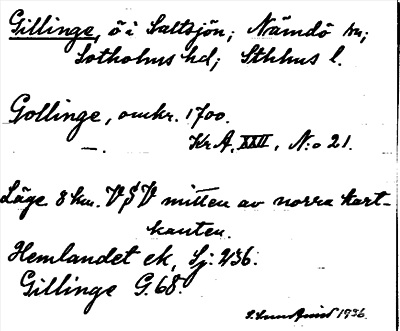 Gillinge, ö i Saltsjön; Nämdö sn;
Sotholms hd; Sthlms l.
Gollinge, omkr. 1700.
—. Kr. A. XXII, N:o 21.
Läge 8 km. V S V mitten av norra kart-
kanten.
Hemlandet ek, Sj: 236.
Gillinge G. 68.
1936.